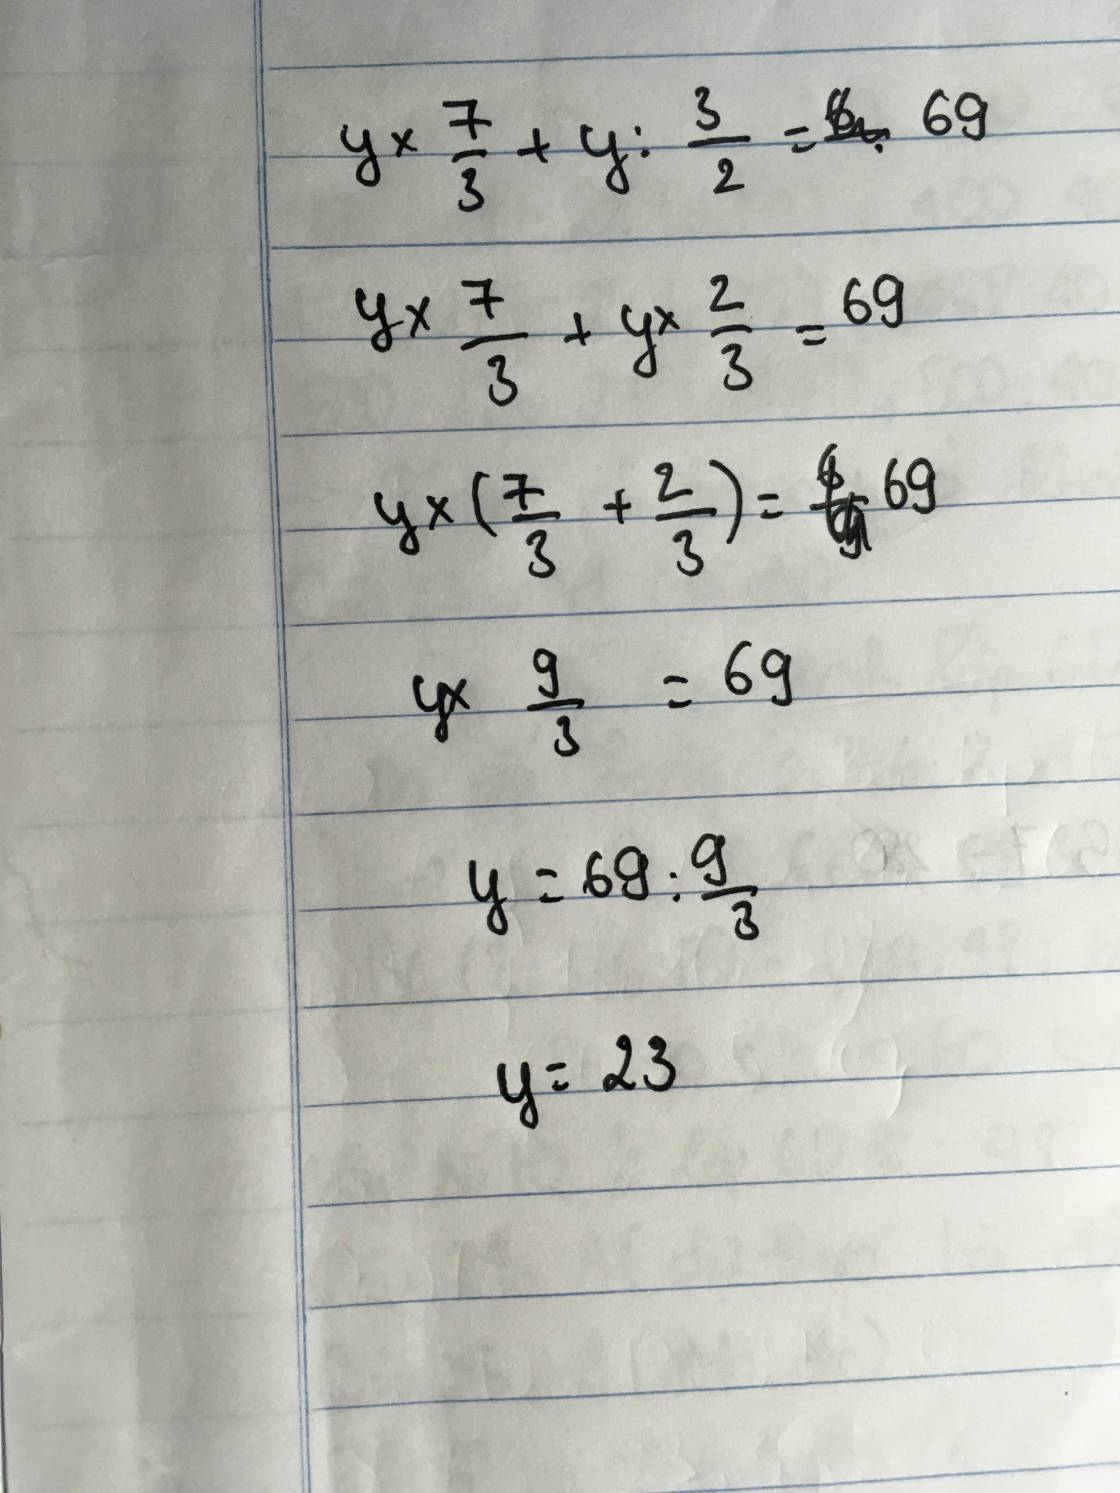 y × 7/3 + y : 3/2 = 69
y × 7/3 + y × 2/3 = 69
y × (7/3 + 2/3) = 69
y × 9/3 = 69
y = 69 : 9/3
y = 23